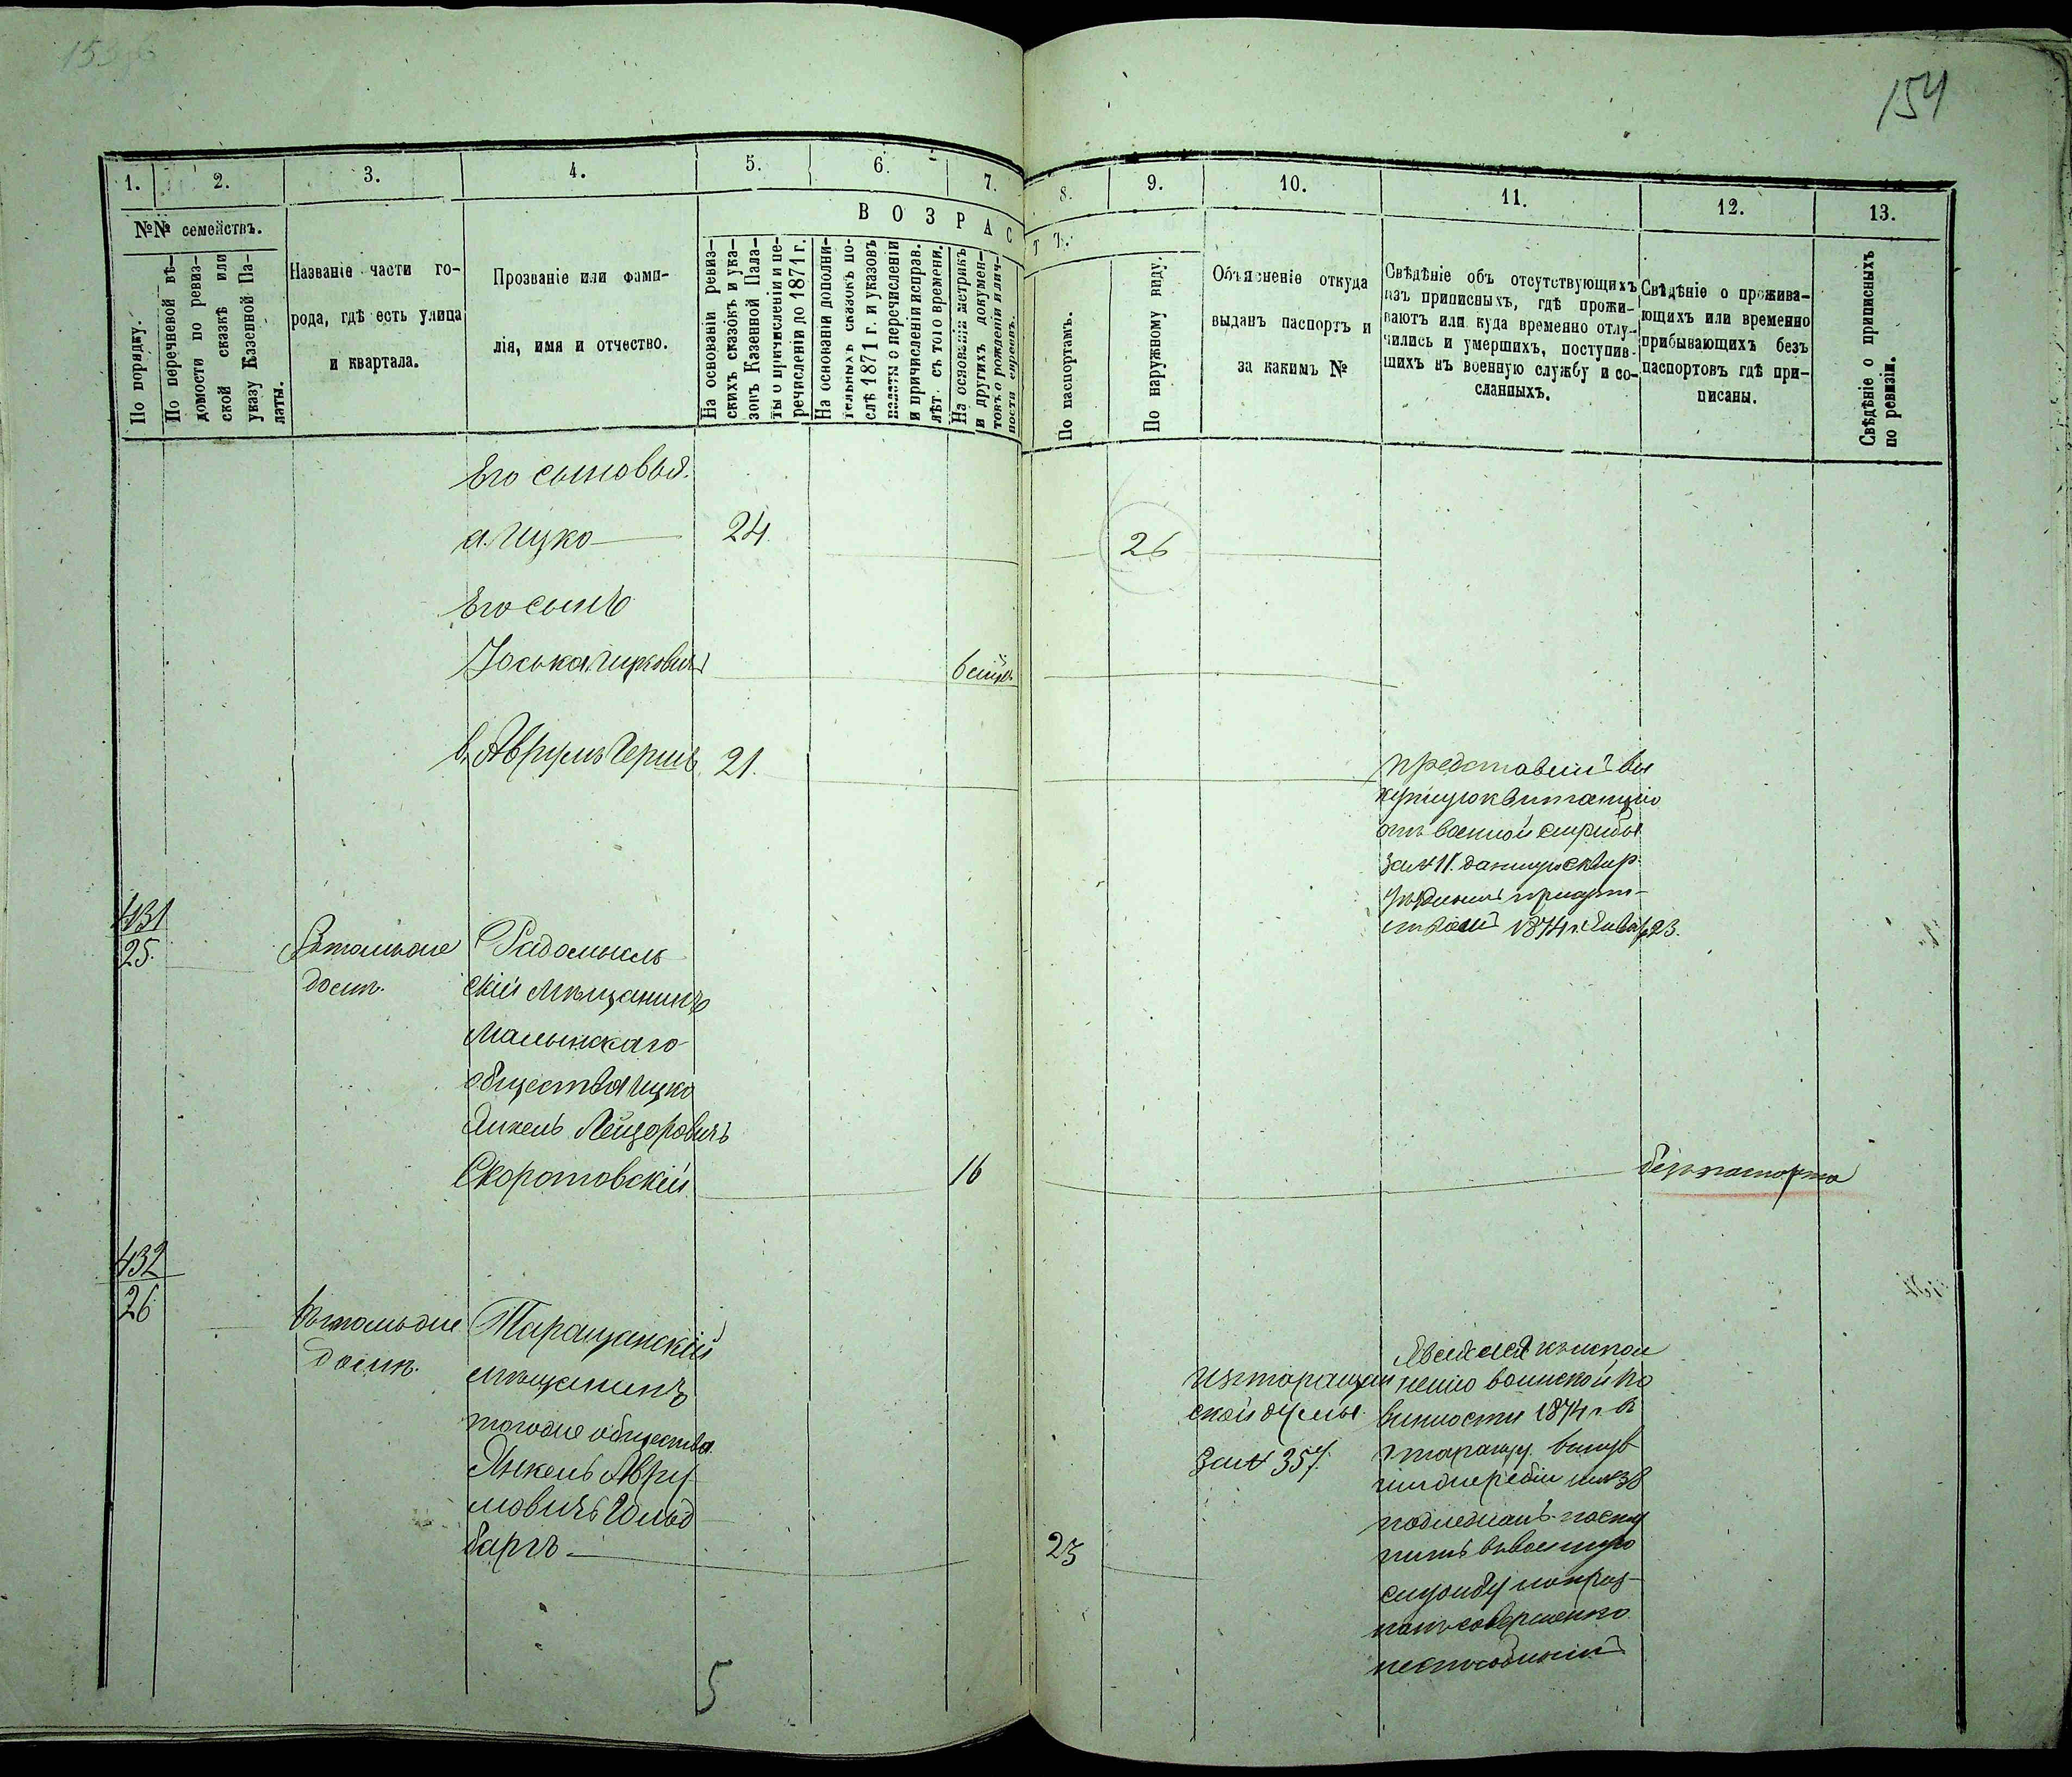 154
1.
2.
3.
4.
5.
6.
7.
8.
9.
10.
11.
12.
13.
№№ семействъ.
ВОЗРАС
ТЪ.
По порядку.
По перечневой вѣ-
домости по ревиз-
ской сказкѣ или
указу Казенной Па-
латы.
Названіе части го-
рода, гдѣ есть улица
и квартала.
Прозваніе или фами-
лія, имя и отчество.
На основаніи ревиз-
скихъ сказокъ и ука-
зовъ Казенной Пала-
ты о причисленіи и пе-
речисленіи до 1871 г.
На основаніи дополни-
тельныхъ сказокъ по-
слѣ 1871 г. и указовъ
палаты о перечисленіи
и причисленіи исправ.
лѣт. съ того времени.
На основаніи метрикъ
и другихъ докумен-
товъ о рожденіи и лич-
ности евреевъ.
По паспортамъ.
По наружному виду.
Объясненіе откуда
выданъ паспортъ и
за какимъ №
Свѣдѣніе объ отсутствующихъ
изъ приписныхъ, гдѣ прожи-
ваютъ или куда временно отлу-
чились и умершихъ, поступив-
шихъ въ военную службу и со-
сланныхъ.
Свѣдѣніе о прожива-
ющихъ или временно
прибывающихъ безъ
паспортовъ гдѣ при-
писаны.
Свѣдѣніе о приписныхъ
по ревизіи.
Его сыновья.
а. Ицко 24 26
Его сынъ
Іоська Ицковичъ
в, Аврумъ Гершъ 21.
представилъ вы
купную квитанцію
отъ военной службы
за № 11. данную Сквир.
уѣзднымъ присут-
ствіемъ 1874 г.
431
25.
въ томъ же
домѣ.
Радомысль
скій мѣщанинъ
Малынскаго
общества Ицко
Янкель Лейзоровичъ
Скоротовскій 16 безъ паспорта
432
26
въ томъ же
домѣ.
Таращанскій
мѣщанинъ
того же общества
Янкель Авру
мовичъ Гольд
баргъ 23
изъ таращан
ской думы
за № 357.
Явился къ испол
ненію воинской по
винности 1874 г. въ
г. таращу. вынув
ши жеребій за № 38
подлежалъ посту
пить въ военную
службу но приз-
нанъ совершенно
неспособнымъ
5